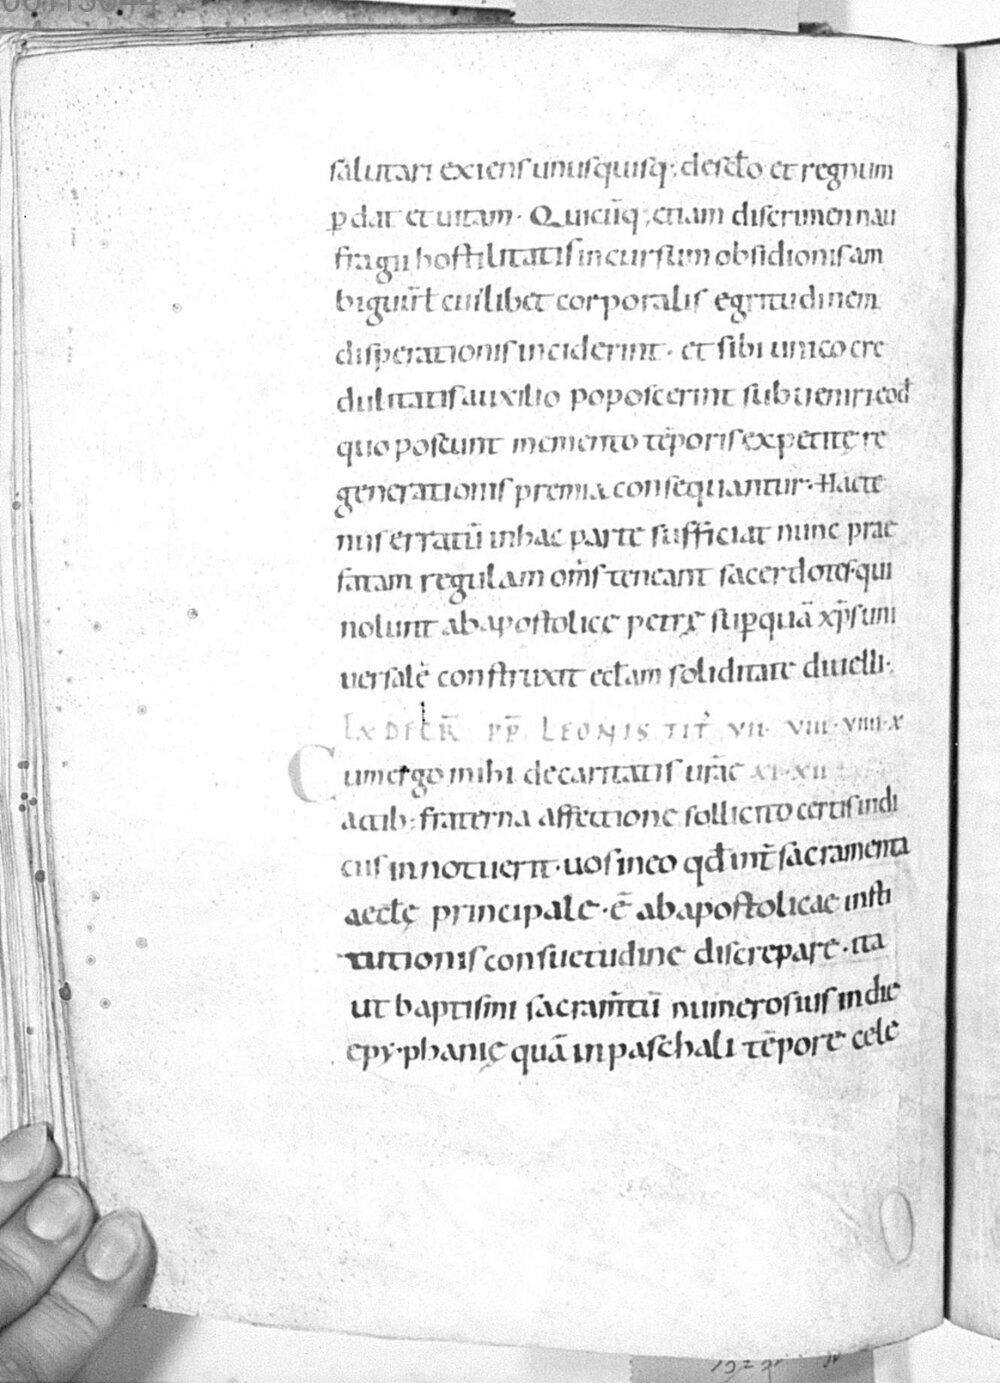 salutari exiens unusquisq; de sclo et regnum
p̱dat et uitam. Quicūq; etiam discrimen nau
fragii hostilitatis incursum obsidionis am
biguū ł cuiłlibet corporalis egritudinem
disperationis inciderint. et sibi unico cre
dulitatis auxilio poposcerint subueniri eod̄
quo poscunt memento tēporis expetitę re
generationis premia consequantur. Hacte
nus erratū in hac parte sufficiat nunc prae
fatam regulam om̄s teneant sacerdotes qui
nolunt ab apostolicę petrę sup̱quā xp̄s uni
uersalē construxit eclam soliditate diuelli.
EX DECR̄ PP̄ LEONIS TIT̄ VII. VIII. VIIII. X
Cum ergo mihi de caritatis urāe XI. XII
actib; fraterna affectione sollicito certis indi
ciis innotuerit. uos in eo qd̄ int̄ sacramenta
aeclę principale. ē ab apostolicae insti
tutionis consuetudine discrepare. ita
ut baptismi sacram̄tū numerosius in die
epyphanię quā in paschali tēpore cele